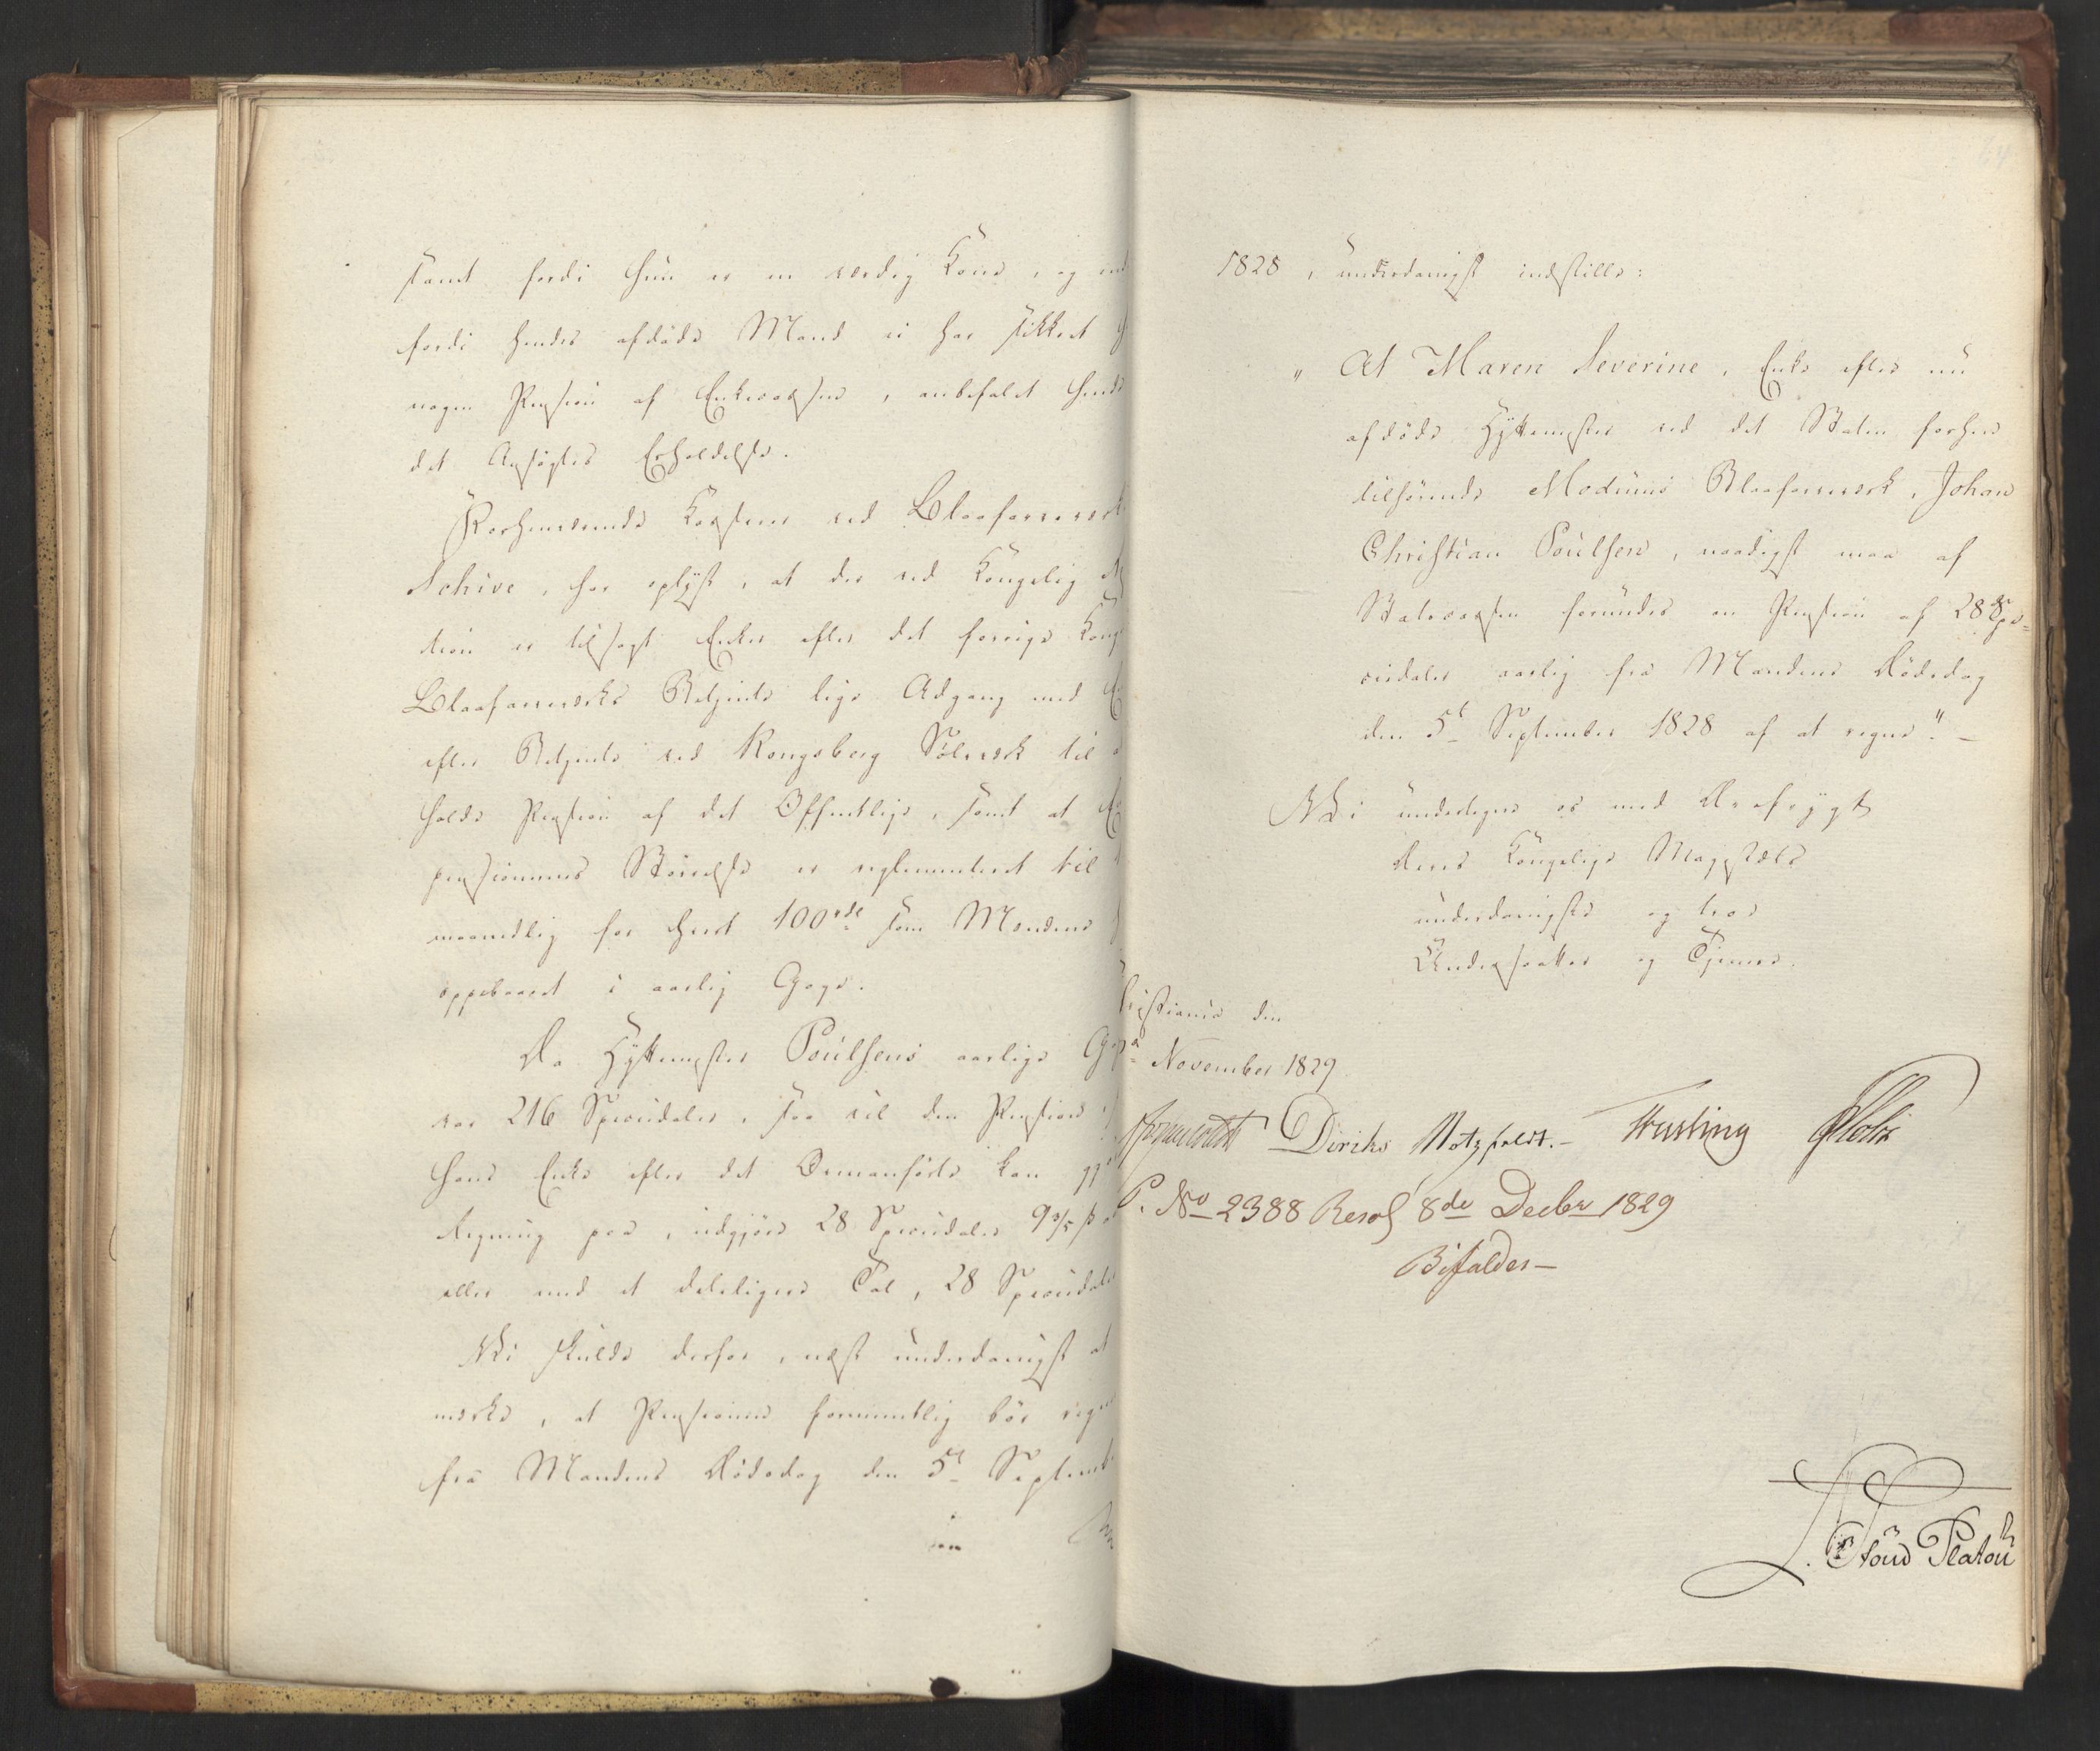 samt fordi hun er en værdig Kone, og end
fordi hendes afdøde Mand ei har sikkret
nogen Pension af Enkecassen, anbefalet hendes
det Ansøgtes Erholdelse.
Vedkommende Kasserer ved Blaafarveværk
Schive, har oplyst, at der ved Kongelig
tion er tilsagt Enker efter det forrige Kong
Blaafarveværks Betjente lige Adgang med
efter Betjente ved Kongsberg Sølvværk til
holde Pension af det Offentlige, samt at
pensionens Størrelse er reglementeret til
maanedlig for hvert 100 rdl som Mandens
oppebaaret i aarlig Gage.
Da Hyttemester Poulsens aarlige Gage
var 216 Speciedaler, saa vil den Pension
hans Enke efter det Ommeldte kan gjøre
Regning paa, udgjøre 28 Speciedaler 9 3/5 ß
eller med et deleligere Tal, 28 Speciedaler
Vi skulde derfor, næst underdanigst at
mærke, at Pensionen formeentlig bør regnes
fra Mandens Dødsdag den 5t Septembe
64
1828, underdanigst indstille:
"At Maren Severine, Enke efter nu
afdøde Hyttemester ved det Staten forhen
tilhørende Modums Blaafarveværk, Johan
Christian Poulsen, naadigst maa af
Statscassen forundes en Pension af 28 Spe=
ciedaler aarlig fra Mandens Dødsdag
den 5t September 1828 af at regne". –
Vi undertegne os med Ærefrygt
Deres Kongelige Majestæts
underdanigste og troe
Undersaatter og Tjenere.
Christiania den
November 1829.
Diriks Motzfeldt. – Fasting
P. No 2388 Resol 8de Decbr 1829
Bifaldes –
L. Stoud Platou